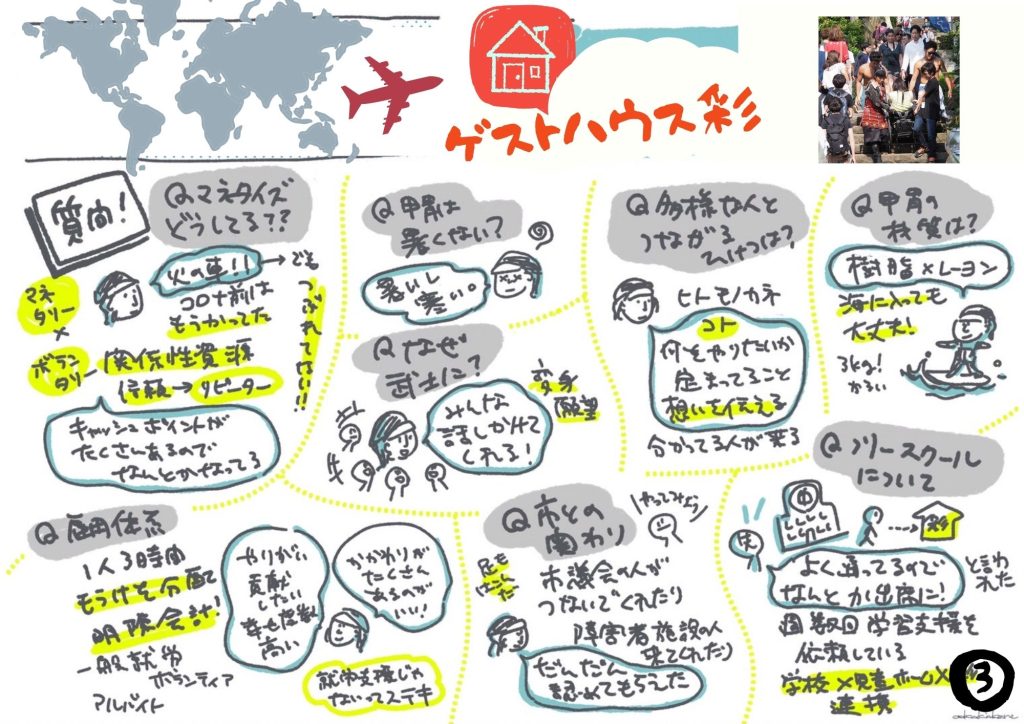 ゲストハウス彩
質問!
Q.マネタイズ
どうしてる??
火の車!! → でも
つぶれてない…!!
コロナ前は
もうかってた
マネ
タリー
×
ボラン
タリー
関係性資源
信頼→リピーター
キャッシュポイントが
たくさんあるので
なんとかなってる
Q 甲冑は
暑くない?
暑いし
寒い。
Q なぜ
武士に?
変身
願望
みんな
話しかけて
くれる!
Q 多様な人と
つながる
ひけつは?
ヒトモノカネ
コト
何をやりたいか
定まってること
想いを伝える
分かってる人が来る
Q 甲冑の
材質は?
樹脂×レーヨン
海に入っても
大丈夫!
3kg!
かるい
Q 雇用体系
1人3時間
もうけを分配
明瞭会計!
一般就労
ボランティア
アルバイト
やりがい
貢献
したい
幸せ度数
高い
かかわりが
たくさん
あるのが
いい!
就労支援じゃ
ないってステキ
Q 市との
関わり
やってみよう
足を
はこんだ
市議会の人が
つないでくれたり
障害者施設の人
来てくれたり
だんだん
認めてもらえた
Q フリースクール
について
彩
よく通ってるので
なんとか出席に!
と言われた
週数回学習支援を
依頼している
学校×児童ホーム×
連携
3